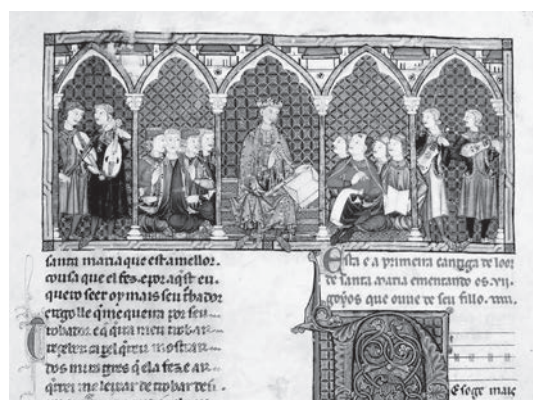 santa maria que est a mellor.
cousa que el fez. e por aqst eu.
quero seer oy mais seu t̃bador
e rogolle q̃ me queira por seu
trobador. e q̃ q̃ira meu trobar
reçeber. ca per el q̃reu mostrar
dos miragres q̃ ela fez. e ar
q̃rrei me leixar de trobar desi.
Esta e a primeira cantiga de loor
de santa maria ementando os .vij.
goyos que ouue de seu fillo.
D
E soge mais